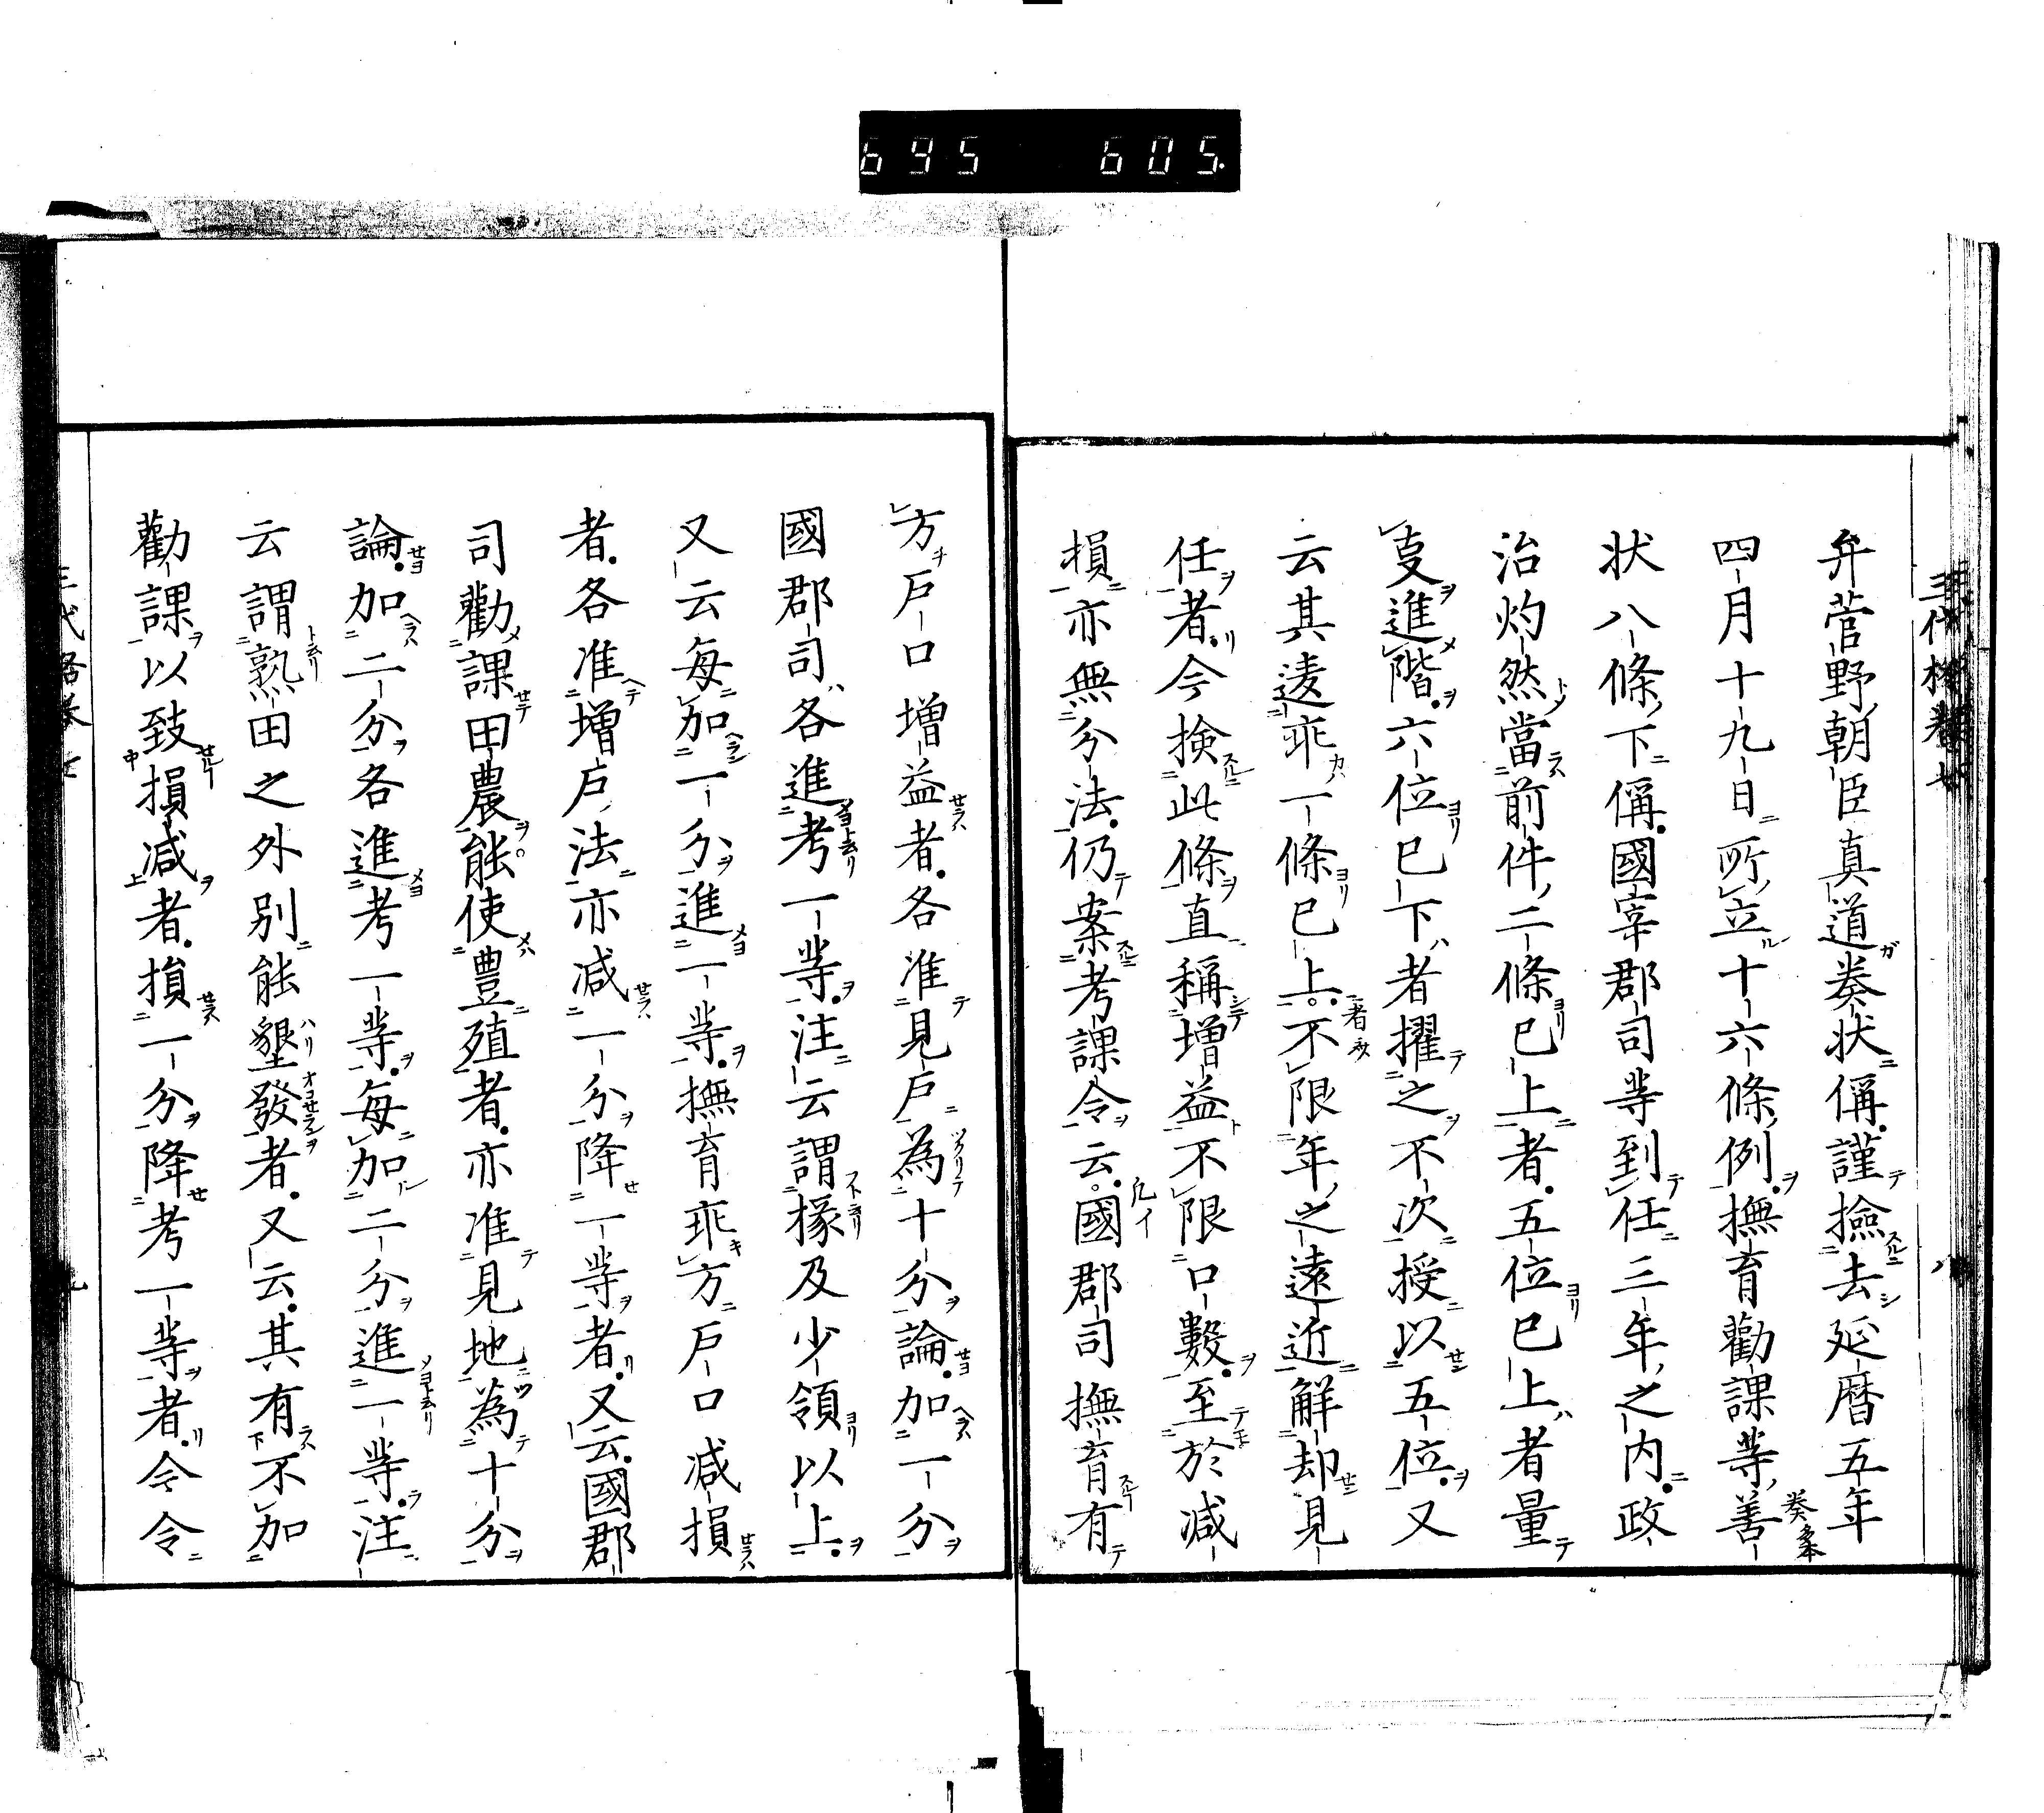 695 605.
三代格卷七 八
弁菅野朝臣真道奏状偁謹撿去延暦五年
四月十九日所立十六條例撫育勸課等善
状八條下偁國宰郡司等到任三年之内政
治灼然當前件二條已上者五位已上者量
夏進階六位已下者擢之不次授以五位又
云其逺乖一條已上不限年之遠近解却見
任者今撿此條直稱増益不限口數至於減
損亦無分法仍案考課令云國郡司撫育有
方戸口増益者各准見戸為十分論加一分
國郡司各進考一等注云謂掾及少領以上
又云每加一分進一等撫育乖方戸口減損
者各准増戸法亦减一分降一等者又云國郡
司勸課田農能使豊殖者亦准見地為十分
論加二分各進考一等每加二分進一等注
云謂熟田之外別能墾發者又云其有不加
勸課以致損减者損一分降考一等者今令
三代格卷七 九